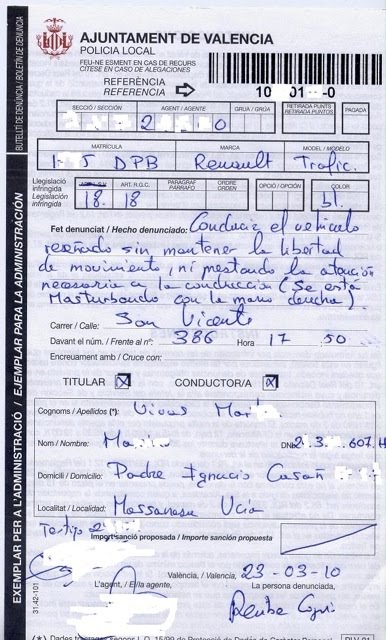 AJUNTAMENT DE VALENCIA
POLICIA LOCAL
FEU-NE ESMENT EN CAS DE RECURS
CÍTESE EN CASO DE ALEGACIONES
REFERÈNCIA
REFERENCIA
10 01 -0
SECCIÓ / SECCIÓN AGENT / AGENTE GRUA / GRÚA RETIRADA PUNTS RETIRADA PUNTOS PAGADA
2 0
MATRICULA MARCA MODEL / MODELO
5 DPB Renault Trafic.
Legislació infringida
Legislación infringida
ART. R.G.C. PARAGRAF PÁRRAFO ORDRE ORDEN OPCIÓ / OPCIÓN COLOR
18. 18 bl.
Fet denunciat / Hecho denunciado: Conducir el vehículo
reseñado sin mantener la libertad
de movimiento, ni prestando la atención
necesaria a la conducción (Se está
Masturbando con la mano derecha).
Carrer / Calle: San Vicente
Davant el núm. / Frente al nº: 386 Hora 17 50
Encreuament amb / Cruce con:
TITULAR X CONDUCTOR/A X
Cognoms / Apellidos (*): Vivas
Nom / Nombre:
DNI 2.3 .607.H
Domicili / Domicilio: Padre Ignacio
Localitat / Localidad: Massanasa Vcia
Testigo 2
Import sanció proposada / Importe sanción propuesta
València, / Valencia, 23-03-10
L'agent, / El/la agente, La persona denunciada,
BUTLLETÍ DE DENÚNCIA / BOLETÍN DE DENUNCIA
EXEMPLAR PER A L'ADMINISTRACIÓ / EJEMPLAR PARA LA ADMINISTRACIÓN
31.42-101